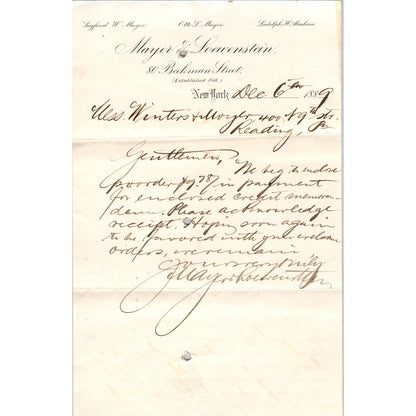 Siegfried W. Mayer. Otto L. Mayer.
Mayer & Loewenstein.
80 Beekman Street,
(Established 1846.)
New York, Dec 6th 1889
Mess. Winters & Moyer, 400. N 9th str.
Reading, Pa
Gentlemen, We beg to enclose
po order $9.78/ in payment
for enclosed credit memoran-
dum. Please acknowledge
receipt. Hoping soon again
to be favored with your welcome
orders, we remain
Yours very truly
Mayer & Loewenstein